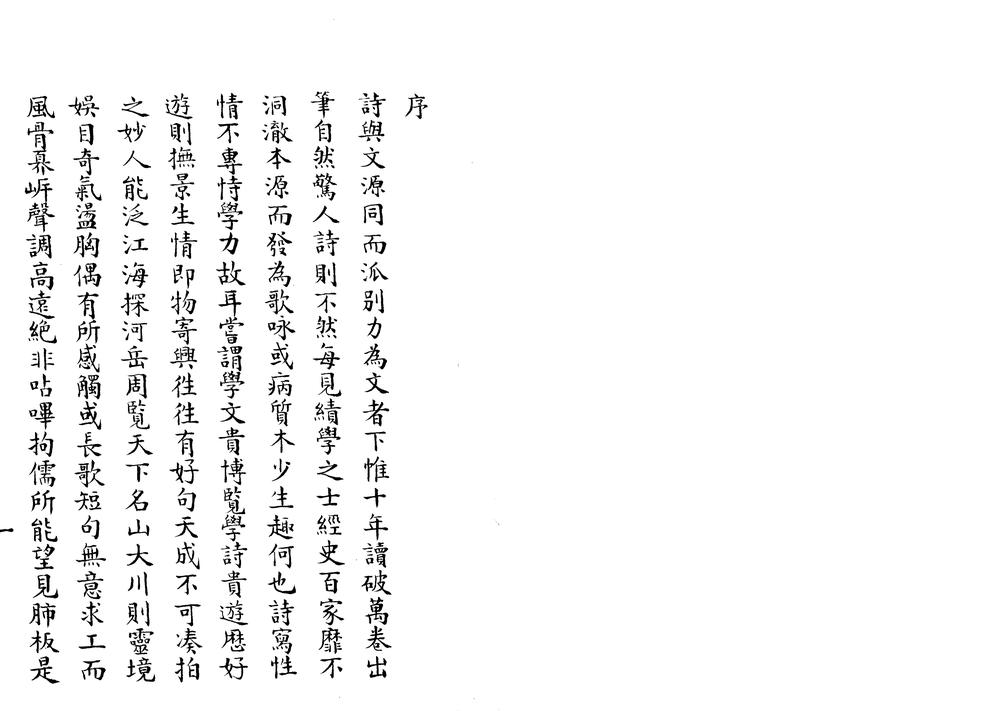 序
詩與文源同而派别力為文者下惟十年讀破萬卷出
筆自然驚人詩則不然每見績學之士經史百家靡不
洞澈本源而發為歌咏或病質木少生趣何也詩寫性
情不專恃學力故耳嘗謂學文貴博覽學詩貴遊歷好
遊則撫景生情即物寄興徃徃有好句天成不可凑拍
之妙人能泛江海探河岳周覧天下名山大川則靈境
娛目奇氣盪胸偶有所感觸或長歌短句無意求工而
風骨岸聲調高遠絶非呫嗶拘儒所能望見肺板是
一